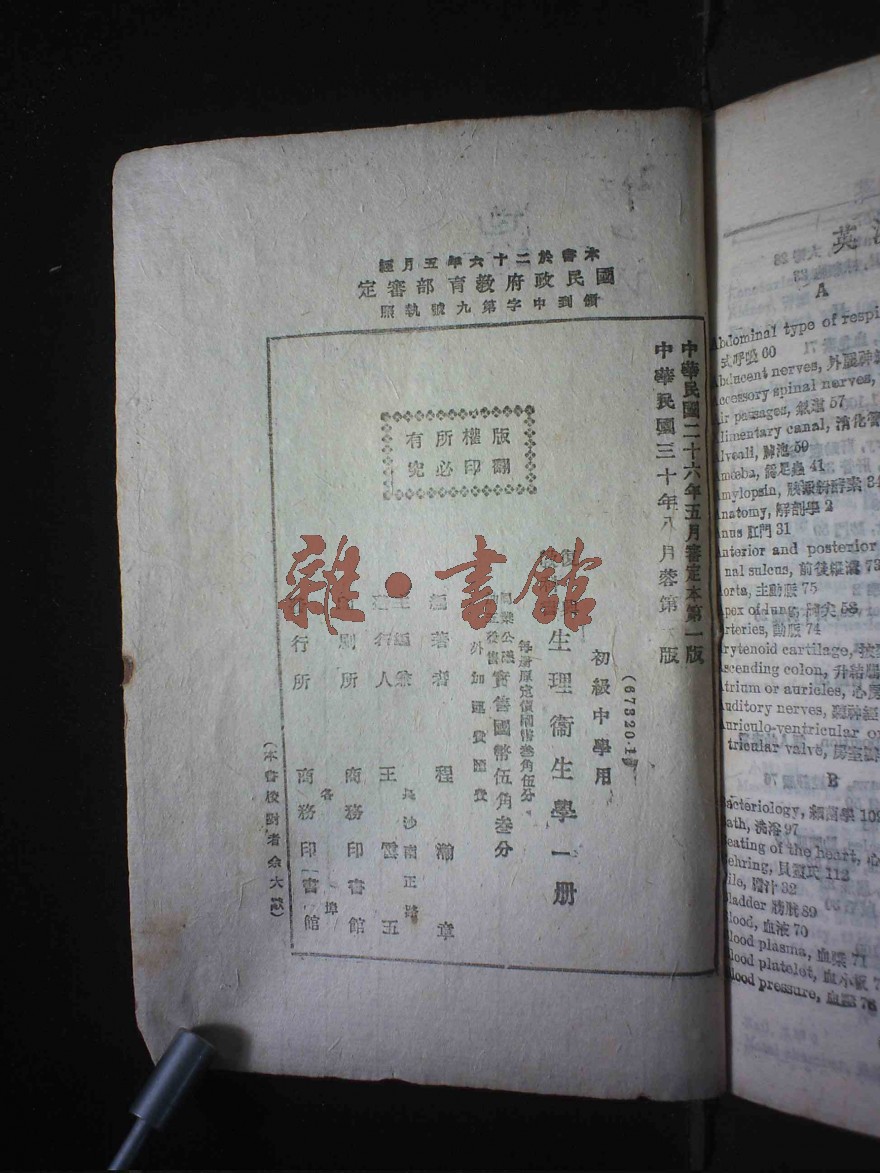 本書於二十六年五月經
國民政府教育部審定
領到中字第九號執照
中華民國二十六年五月審定本第一版
中華民國三十年八月蓉第 版
版權所有
翻印必究
(67320·1)
初級中學用
生理衞生學一册
每册原定價國幣叁角伍分
實售國幣伍角叁分
外加運費匯費
編著者 程瀚章
主編兼
發行人 王雲五
長沙南正路
印刷所 商務印書館
各埠
發行所 商務印書館
(本書校對者余大猷)
雜·書館
英
A
Abdominal type of respi
式呼吸 60
Abducent nerves, 外旋神經
Accessory spinal nerves,
Air passages, 氣道 57
Alimentary canal, 消化管
Alveoli, 肺泡 59
Amœba, 變足蟲 41
Amylopsin, 胰澱粉酵素 34
Anatomy, 解剖學 2
Anus 肛門 31
Anterior and posterior
nal sulcus, 前後縱溝 73
Aorta, 主動脈 75
Apex of lung, 肺尖 58
Arteries, 動脈 74
Arytenoid cartilage,
Ascending colon, 升結腸
Atrium or auricles, 心房
Auditory nerves, 聽神經
Auriculo-ventricular or
tricular valve, 房室瓣
B
Bacteriology, 細菌學 109
Bath, 洗浴 97
Beating of the heart, 心
Behring, 貝靈氏 112
Bile, 膽汁 32
Bladder 膀胱 89
Blood, 血液 70
Blood plasma, 血漿 71
Blood platelet, 血小板 7
Blood pressure, 血壓 78